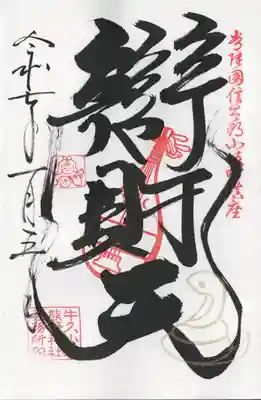 常陸國信太郡小坂鎮座
辯財天
令和七年一月五日
牛久小坂
熊野神社
社務所印